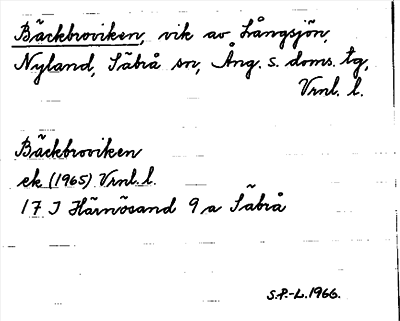 Bäckbroviken, vik av Långsjön,
Nyland, Säbrå sn, Ång. s. doms. tg,
Vrnl. l.
Bäckbroviken
ek (1965) Vrnl. l.
17 I Härnösand 9 a Säbrå
S.P.-L. 1966.